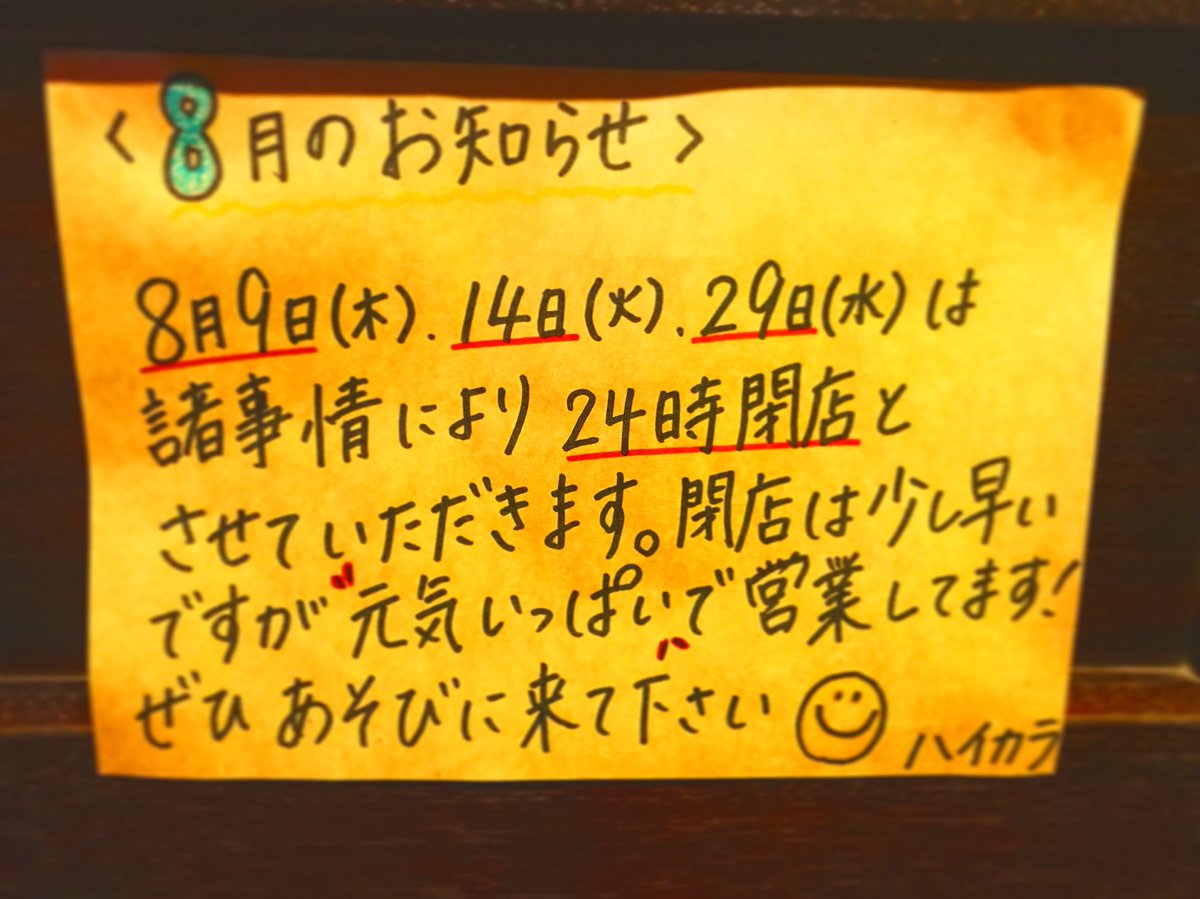 <8月のお知らせ>
8月9日(木).14日(火).29日(水)は
諸事情により24時閉店と
させていただきます。閉店は少し早い
ですが"元気いっぱい"で営業してます!
ぜひあそびに来て下さい
ハイカラ